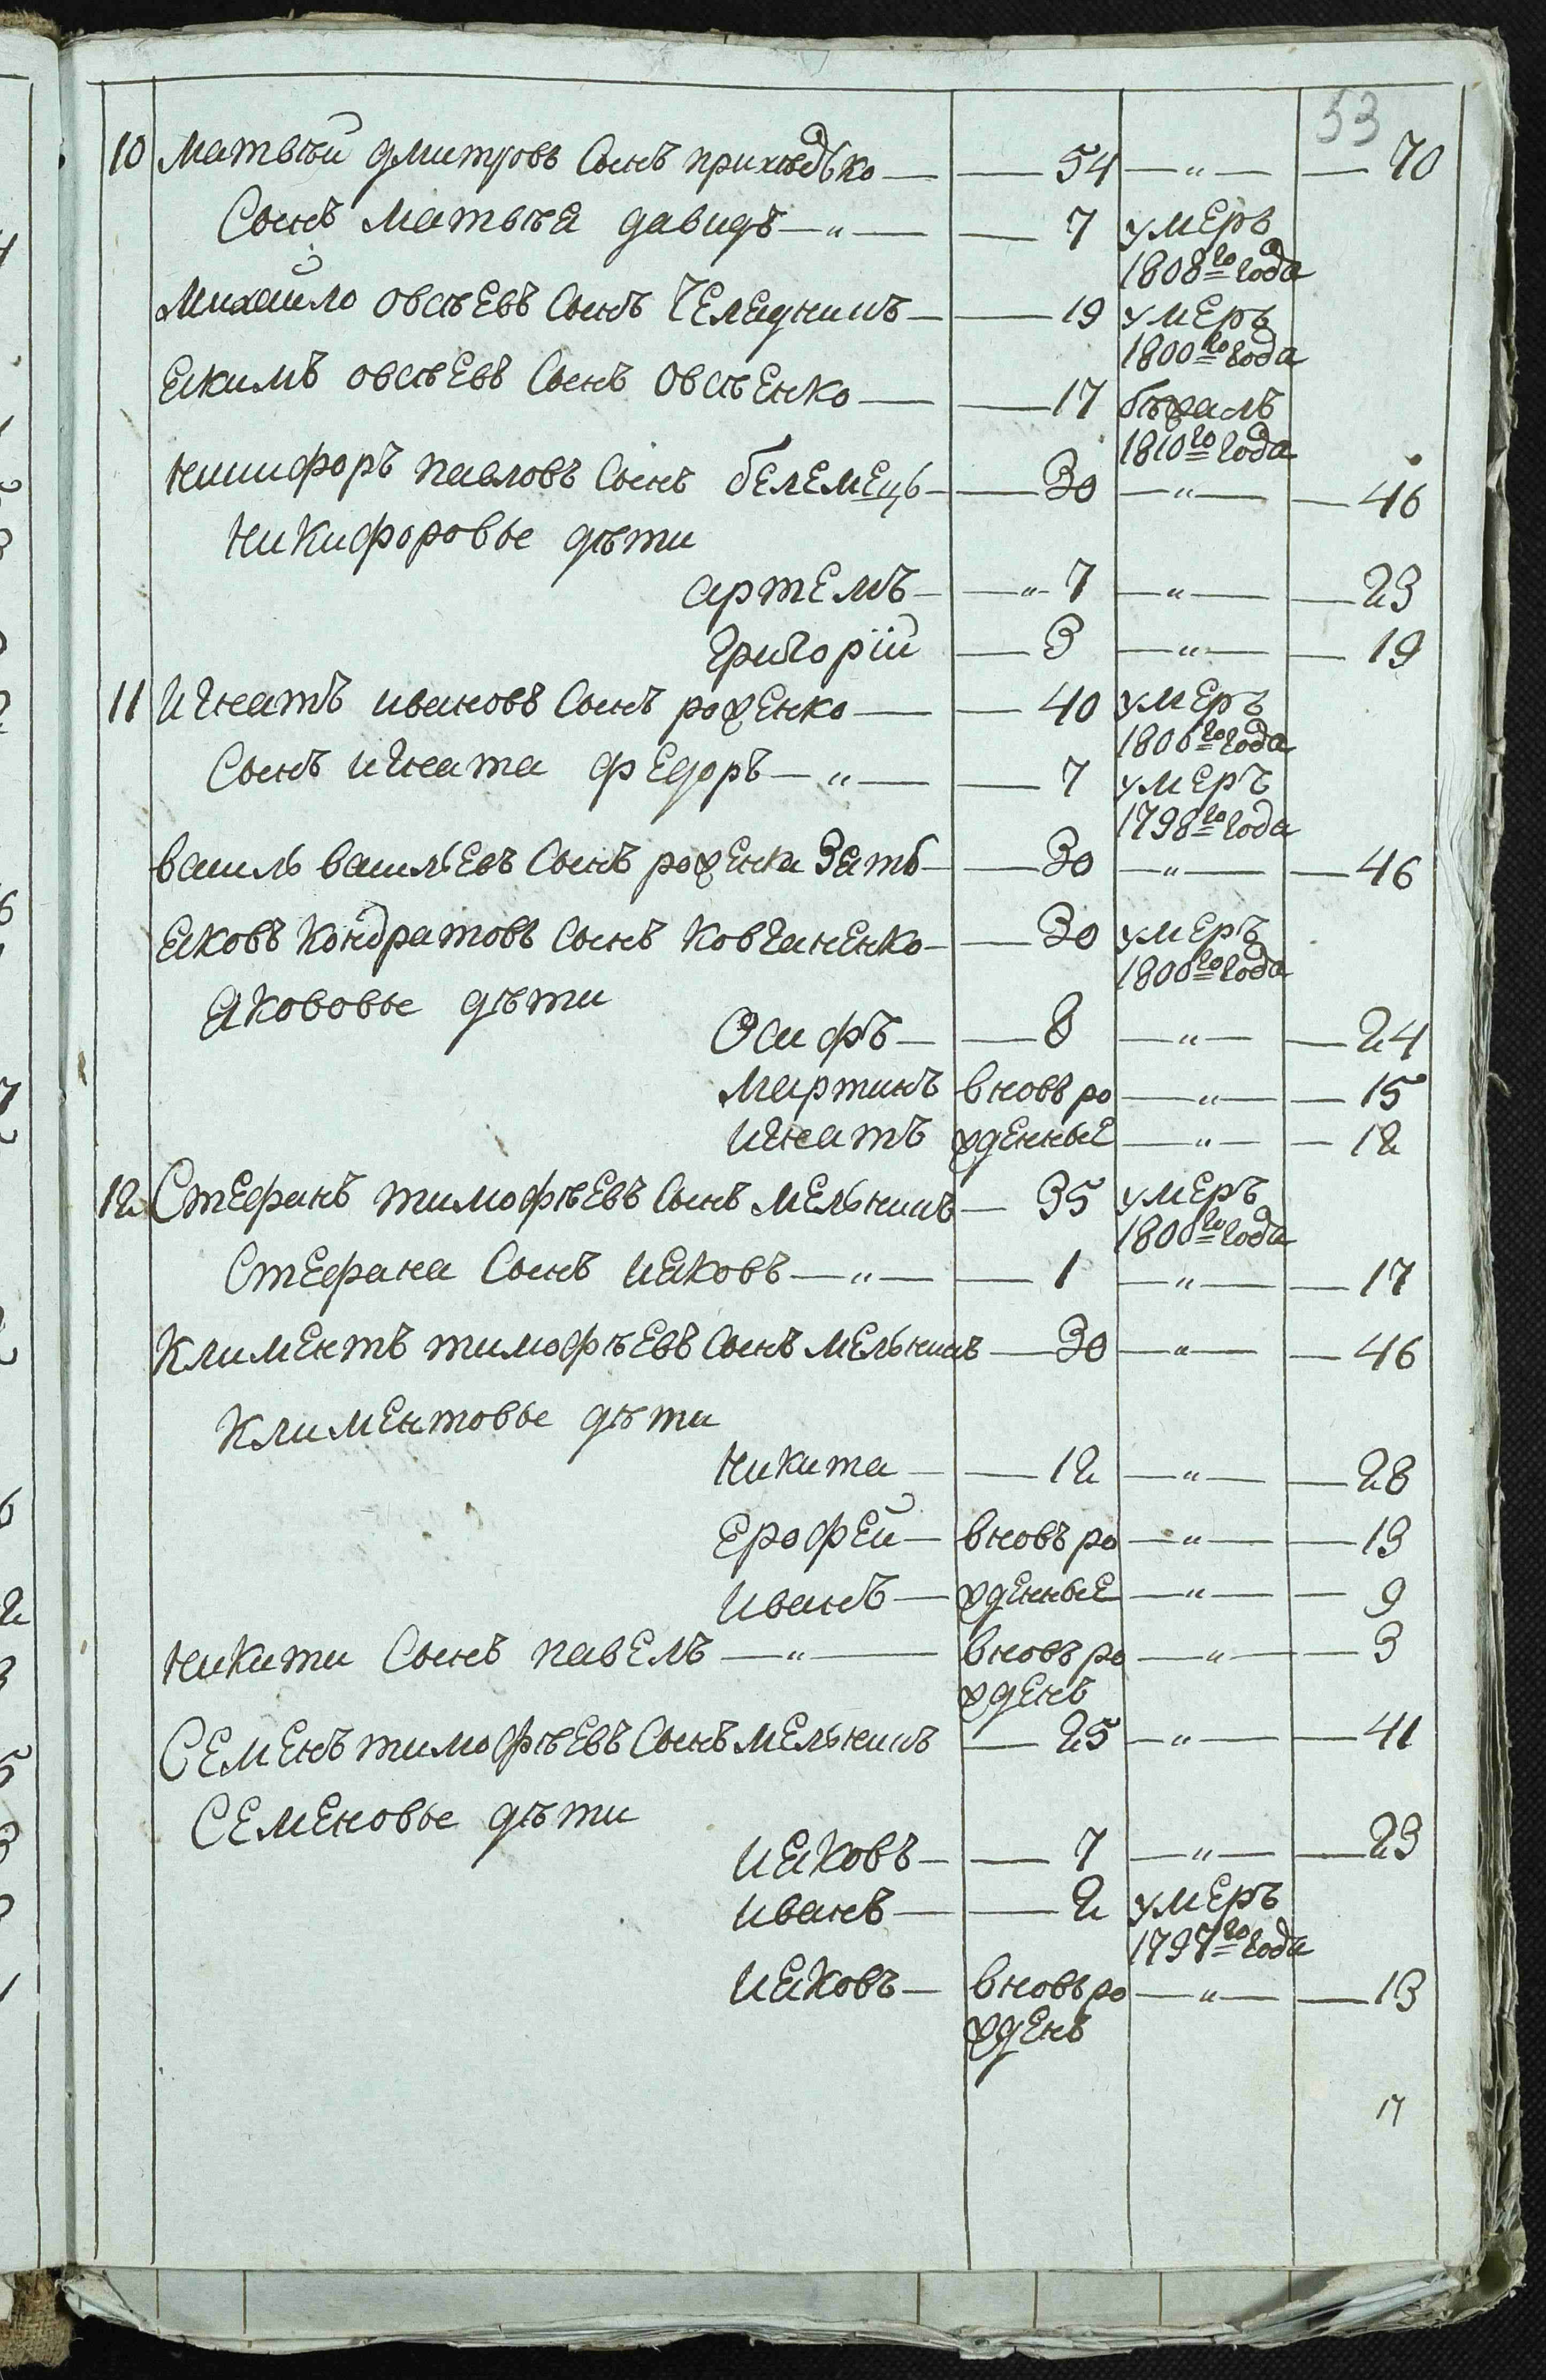 53
10 Матвѣй Дмитровъ Сынъ Прихѣдько — 54 — „ — 70
Сынъ Матвѣя Давидъ — „ — 7 умеръ
1808го года
Михайло Овсѣевъ Сынъ Челядникъ — 19 умеръ
1800го года
Якимъ Овсѣевъ Сынъ Овсѣенко — 17 бѣжалъ
1810го года
Никифоръ Павловъ Сынъ Белемець — 30 — „ — 46
Никифоровые дѣти
Артемъ — „ 7 — „ — 23
Григорій — 3 — „ — 19
11 Игнатъ Ивановъ Сынъ Роженко — 40 умеръ
1806го года
Сынъ Игната Федоръ — „ — 7 умеръ
1798го года
Василь Васильевъ Сынъ Роженка Зять — 30 — „ — 46
Яковъ Кондратовъ Сынъ Ковганенко — 30 умеръ
1800го года
Якововые дѣти
Осифъ — 8 — „ — 24
Мартинъ вновь ро — „ — 15
Игнатъ жденные — „ — 12
12 Стефанъ Тимофѣевъ Сынъ Мельникъ — 35 умеръ
1800го года
Стефана Сынъ Ияковъ — „ — 1 — „ — 17
Климентъ Тимофѣевъ Сынъ Мельникъ — 30 — „ — 46
Климентовые дѣти
Никита — 12 — „ — 28
Ерофей — вновь ро — „ — 13
Иванъ — жденные — „ — 9
Никити Сынъ Павелъ — „ — вновь ро — „ — 3
жденъ
Семенъ Тимофѣевъ Сынъ Мельникъ — 25 — „ — 41
Семеновые дѣти
Ияковъ — 7 — „ — 23
Иванъ — 2 умеръ
1797го года
Ияковъ — вновь ро — „ — 13
жденъ
17